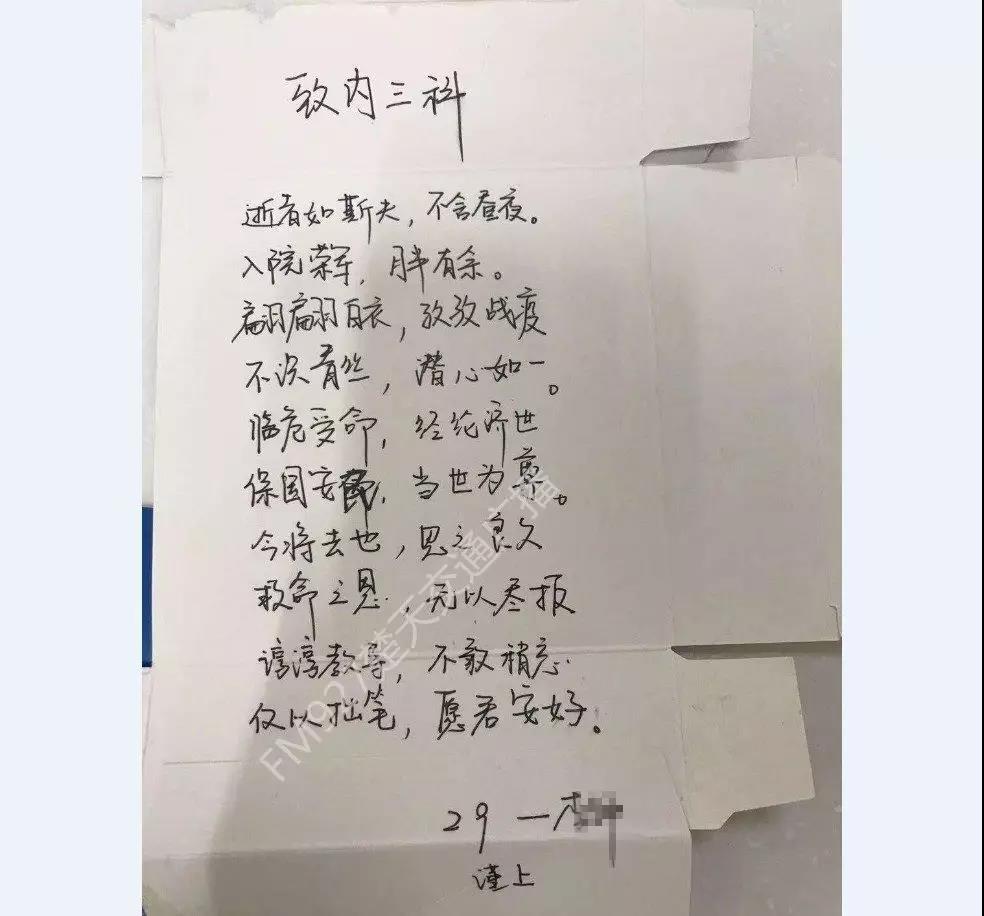 致内三科
逝者如斯夫，不舍昼夜。
入院荣军，胖有余。
翩翩白衣，孜孜战疫
不没青丝，潜心如一。
临危受命，经纶济世
保国安民，当世为幕。
今将去也，思之良久
救命之恩，无以尽报
谆谆教导，不敢稍忘.
仅以拙笔，愿君安好。
29 一
谨上
FM927楚天交通广播